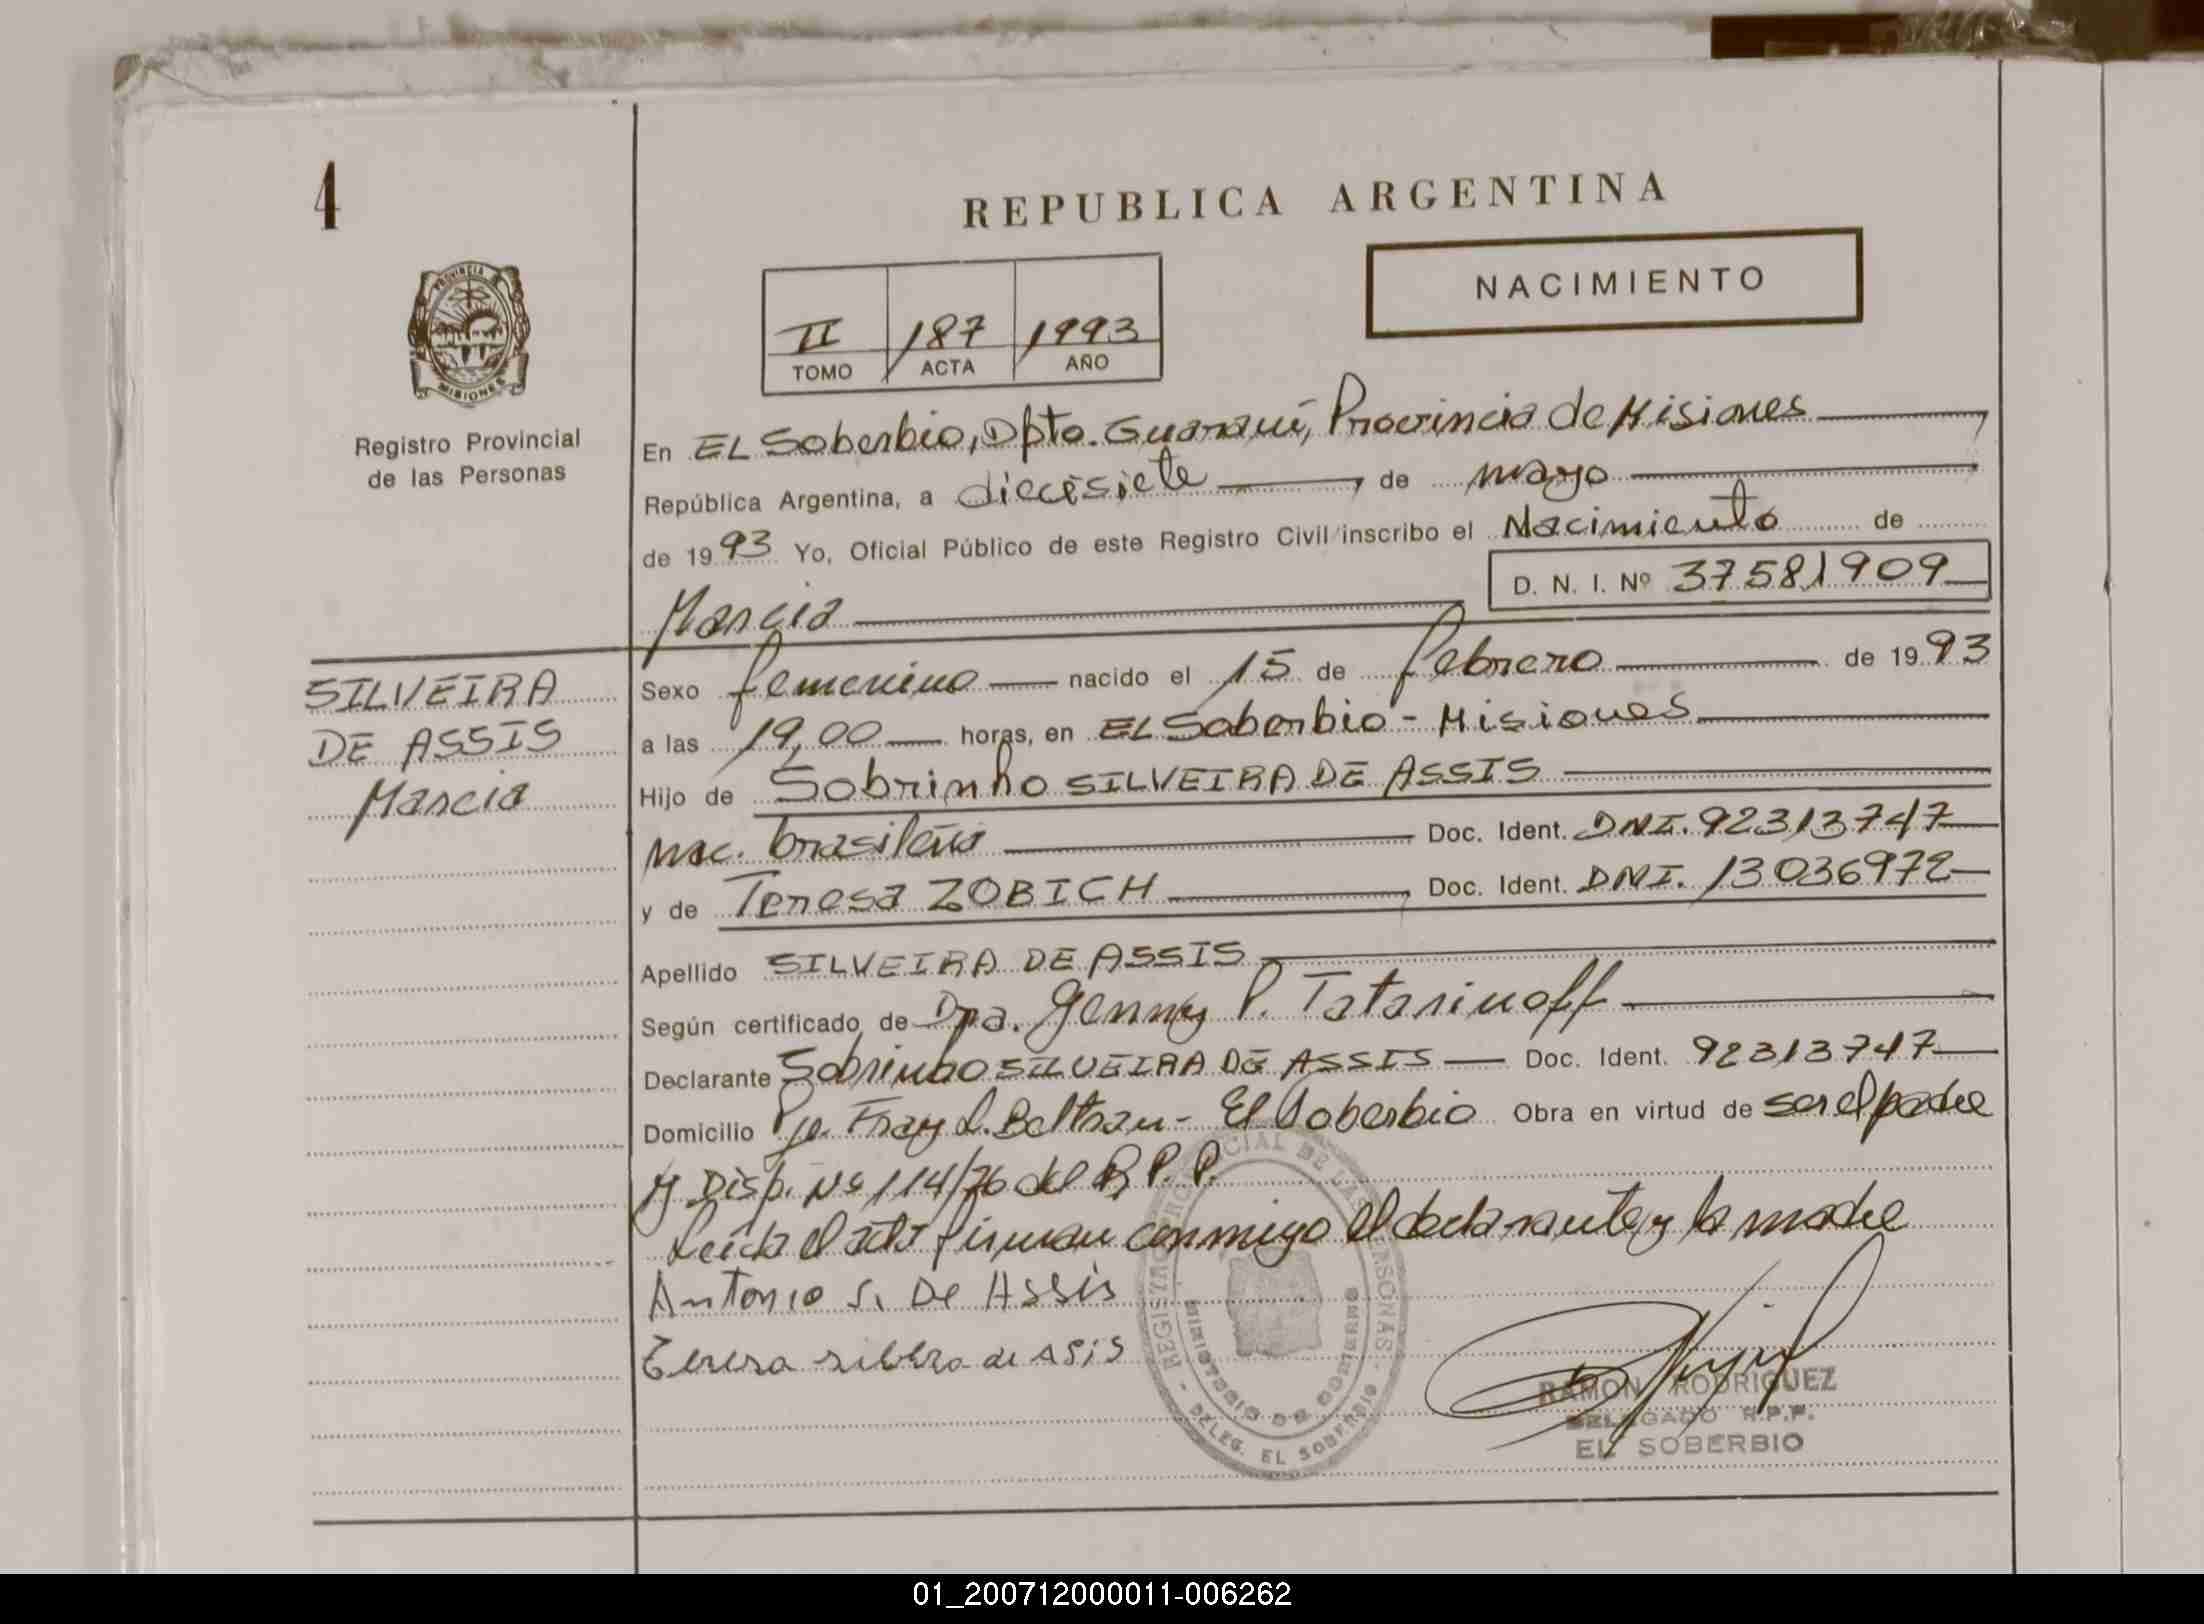 4
REPUBLICA ARGENTINA
NACIMIENTO
II 187 1993
TOMO ACTA AÑO
PROVINCIA
MISIONES
Registro Provincial
de las Personas
En EL Soberbio, Dpto. Guaraní, Provincia de Misiones
República Argentina, a diecisiete de mayo
de 1993 Yo, Oficial Público de este Registro Civil inscribo el Nacimiento de
D. N. I. Nº 37581909
Marcia
SILVEIRA
DE ASSIS
Marcia
Sexo femenino nacido el 15 de febrero de 1993
a las 19,00 horas, en EL Soberbio - Misiones
Hijo de Sobrinho SILVEIRA DE ASSIS
nac. brasileña Doc. Ident. DNI. 92313747
y de Teresa ZOBICH Doc. Ident. DNI. 13036972
Apellido SILVEIRA DE ASSIS
Según certificado de Dra. Genny P. Tatarinoff
Declarante Sobrinho SILVEIRA DE ASSIS Doc. Ident. 92313747
Domicilio Pje. Fray L. Beltran - El Soberbio Obra en virtud de ser el padre
y Disp. Nº 114/76 del R. P. P.
Leída el acta firman conmigo el declarante y la madre
Antonio S. De Assis
Teresa silvera de asis
REGISTRO PROVINCIAL DE LAS PERSONAS - DELEG. EL SOBERBIO -
MINISTERIO DE GOBIERNO
RAMON RODRIGUEZ
DELEGADO R.P.P.
EL SOBERBIO
01_200712000011-006262